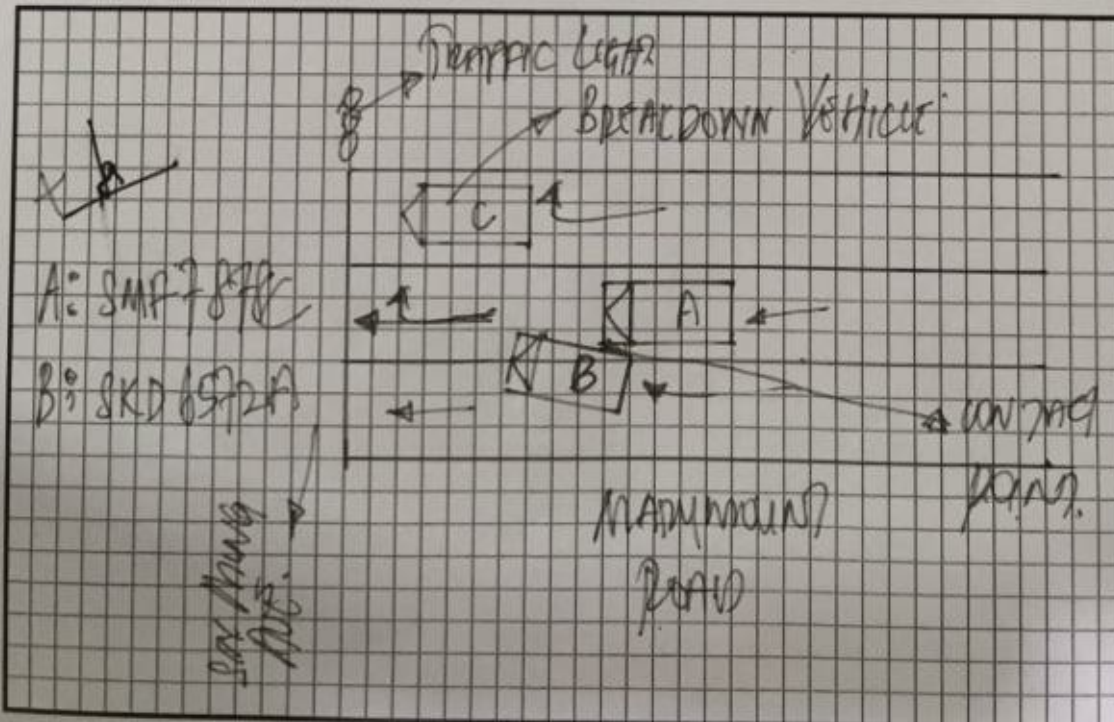 TRAFFIC LIGHT
BREAKDOWN VEHICLE
C
A: SMF7878C
A
B: SKD6572A
B
CONTACT
POINT.
MARYMOUNT
ROAD
SIN MING
AVE.